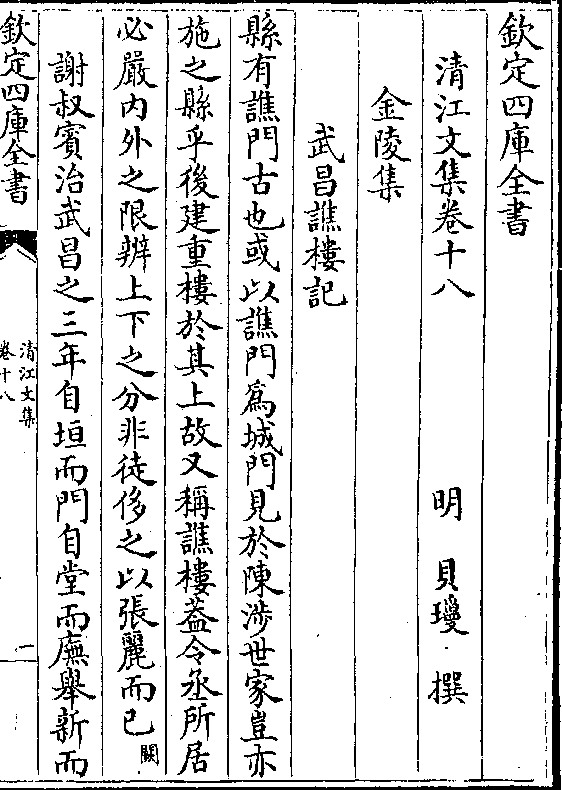 欽定四庫全書
清江文集卷十八　明　貝瓊　撰
金陵集
武昌譙樓記
縣有譙門古也或以譙門為城門見於陳渉世家豈亦
施之縣乎後建重樓於其上故又稱譙樓葢令丞所居
必嚴内外之限辨上下之分非徒侈之以張麗而已闕
謝叔賓治武昌之三年自垣而門自堂而廡舉新而
欽定四庫全書
清江文集
卷十八
一